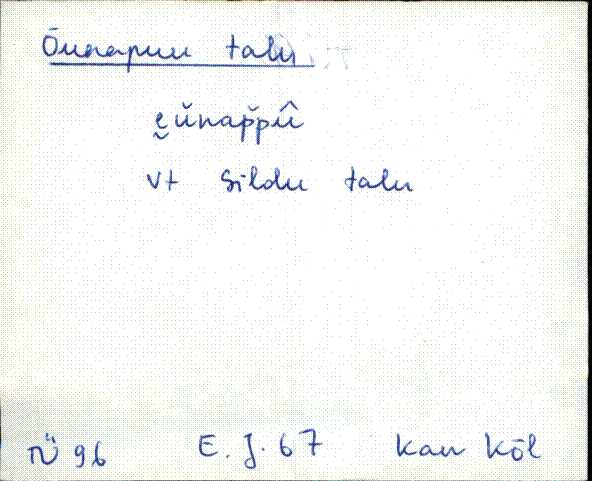 Õunapuu talu
e̮ŭnap̆pû
vt Sildu talu
TÜ 96 E. J. 67 Kan Kõl